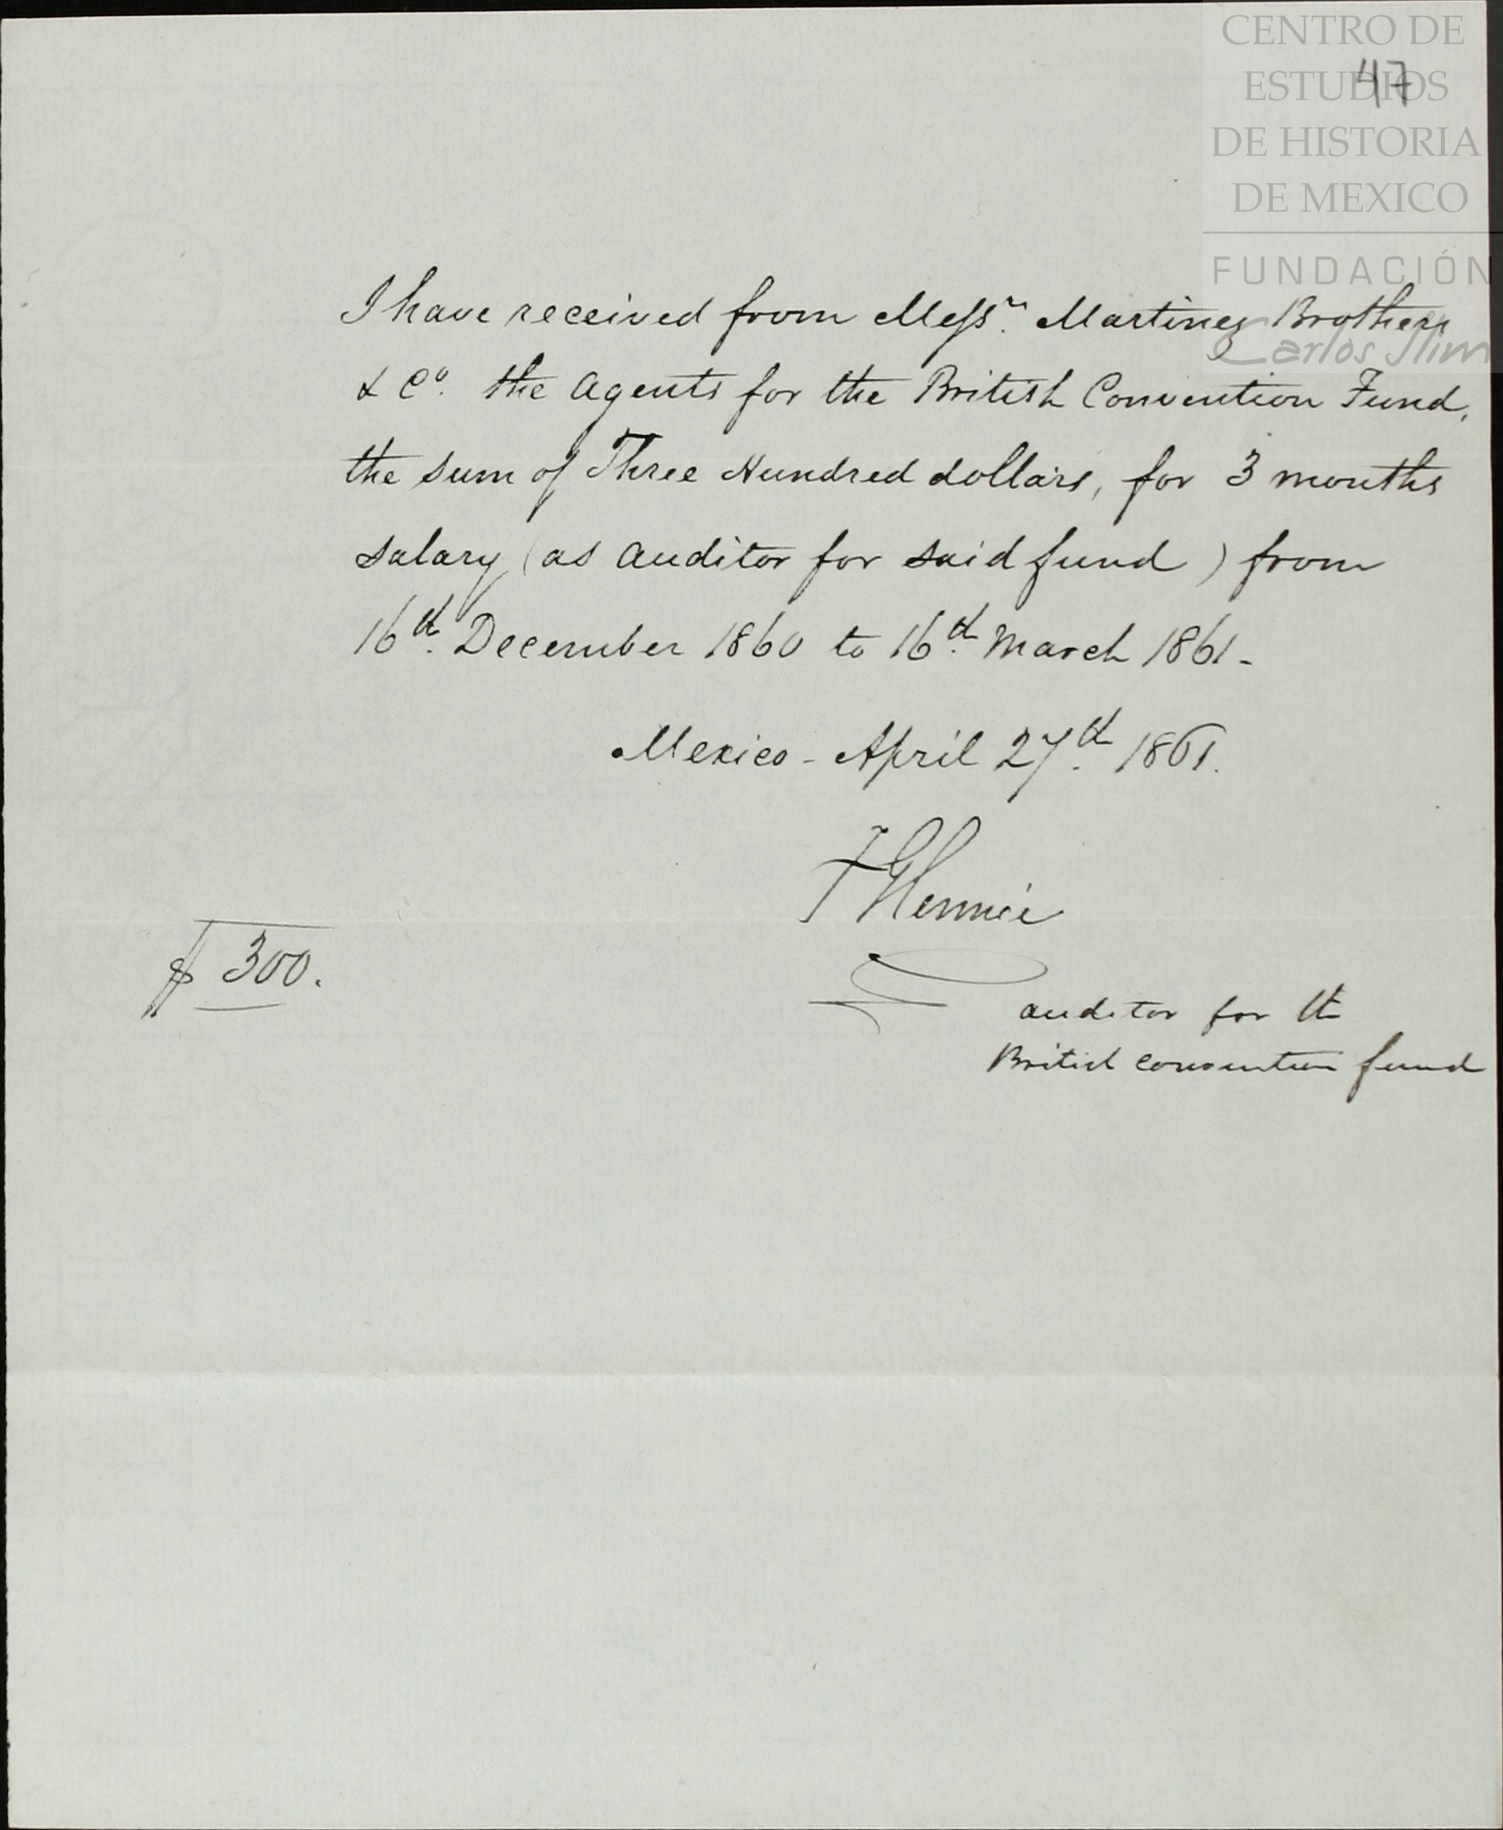 CENTRO DE
ESTUDIOS
47
DE HISTORIA
DE MEXICO
FUNDACIÓN
Carlos Slim
I have received from Messrs. Martinez Brothers
& Co. the Agents for the British Convention Fund,
the sum of Three Hundred dollars, for 3 months
salary (as auditor for said fund) from
16th. December 1860 to 16th. March 1861-
Mexico - April 27th. 1861.
$ 300.
auditor for the
British convention fund